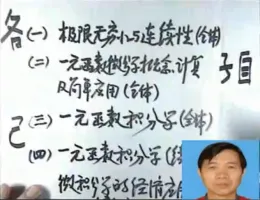 各
(一) 极限无穷小与连续性(全体)
(二) 一元函数微分学概念、计算
及简单应用(全体)
子目
己
(三) 一元函数积分学(全体)
(四) 一元函数积分学(
微积学的经济